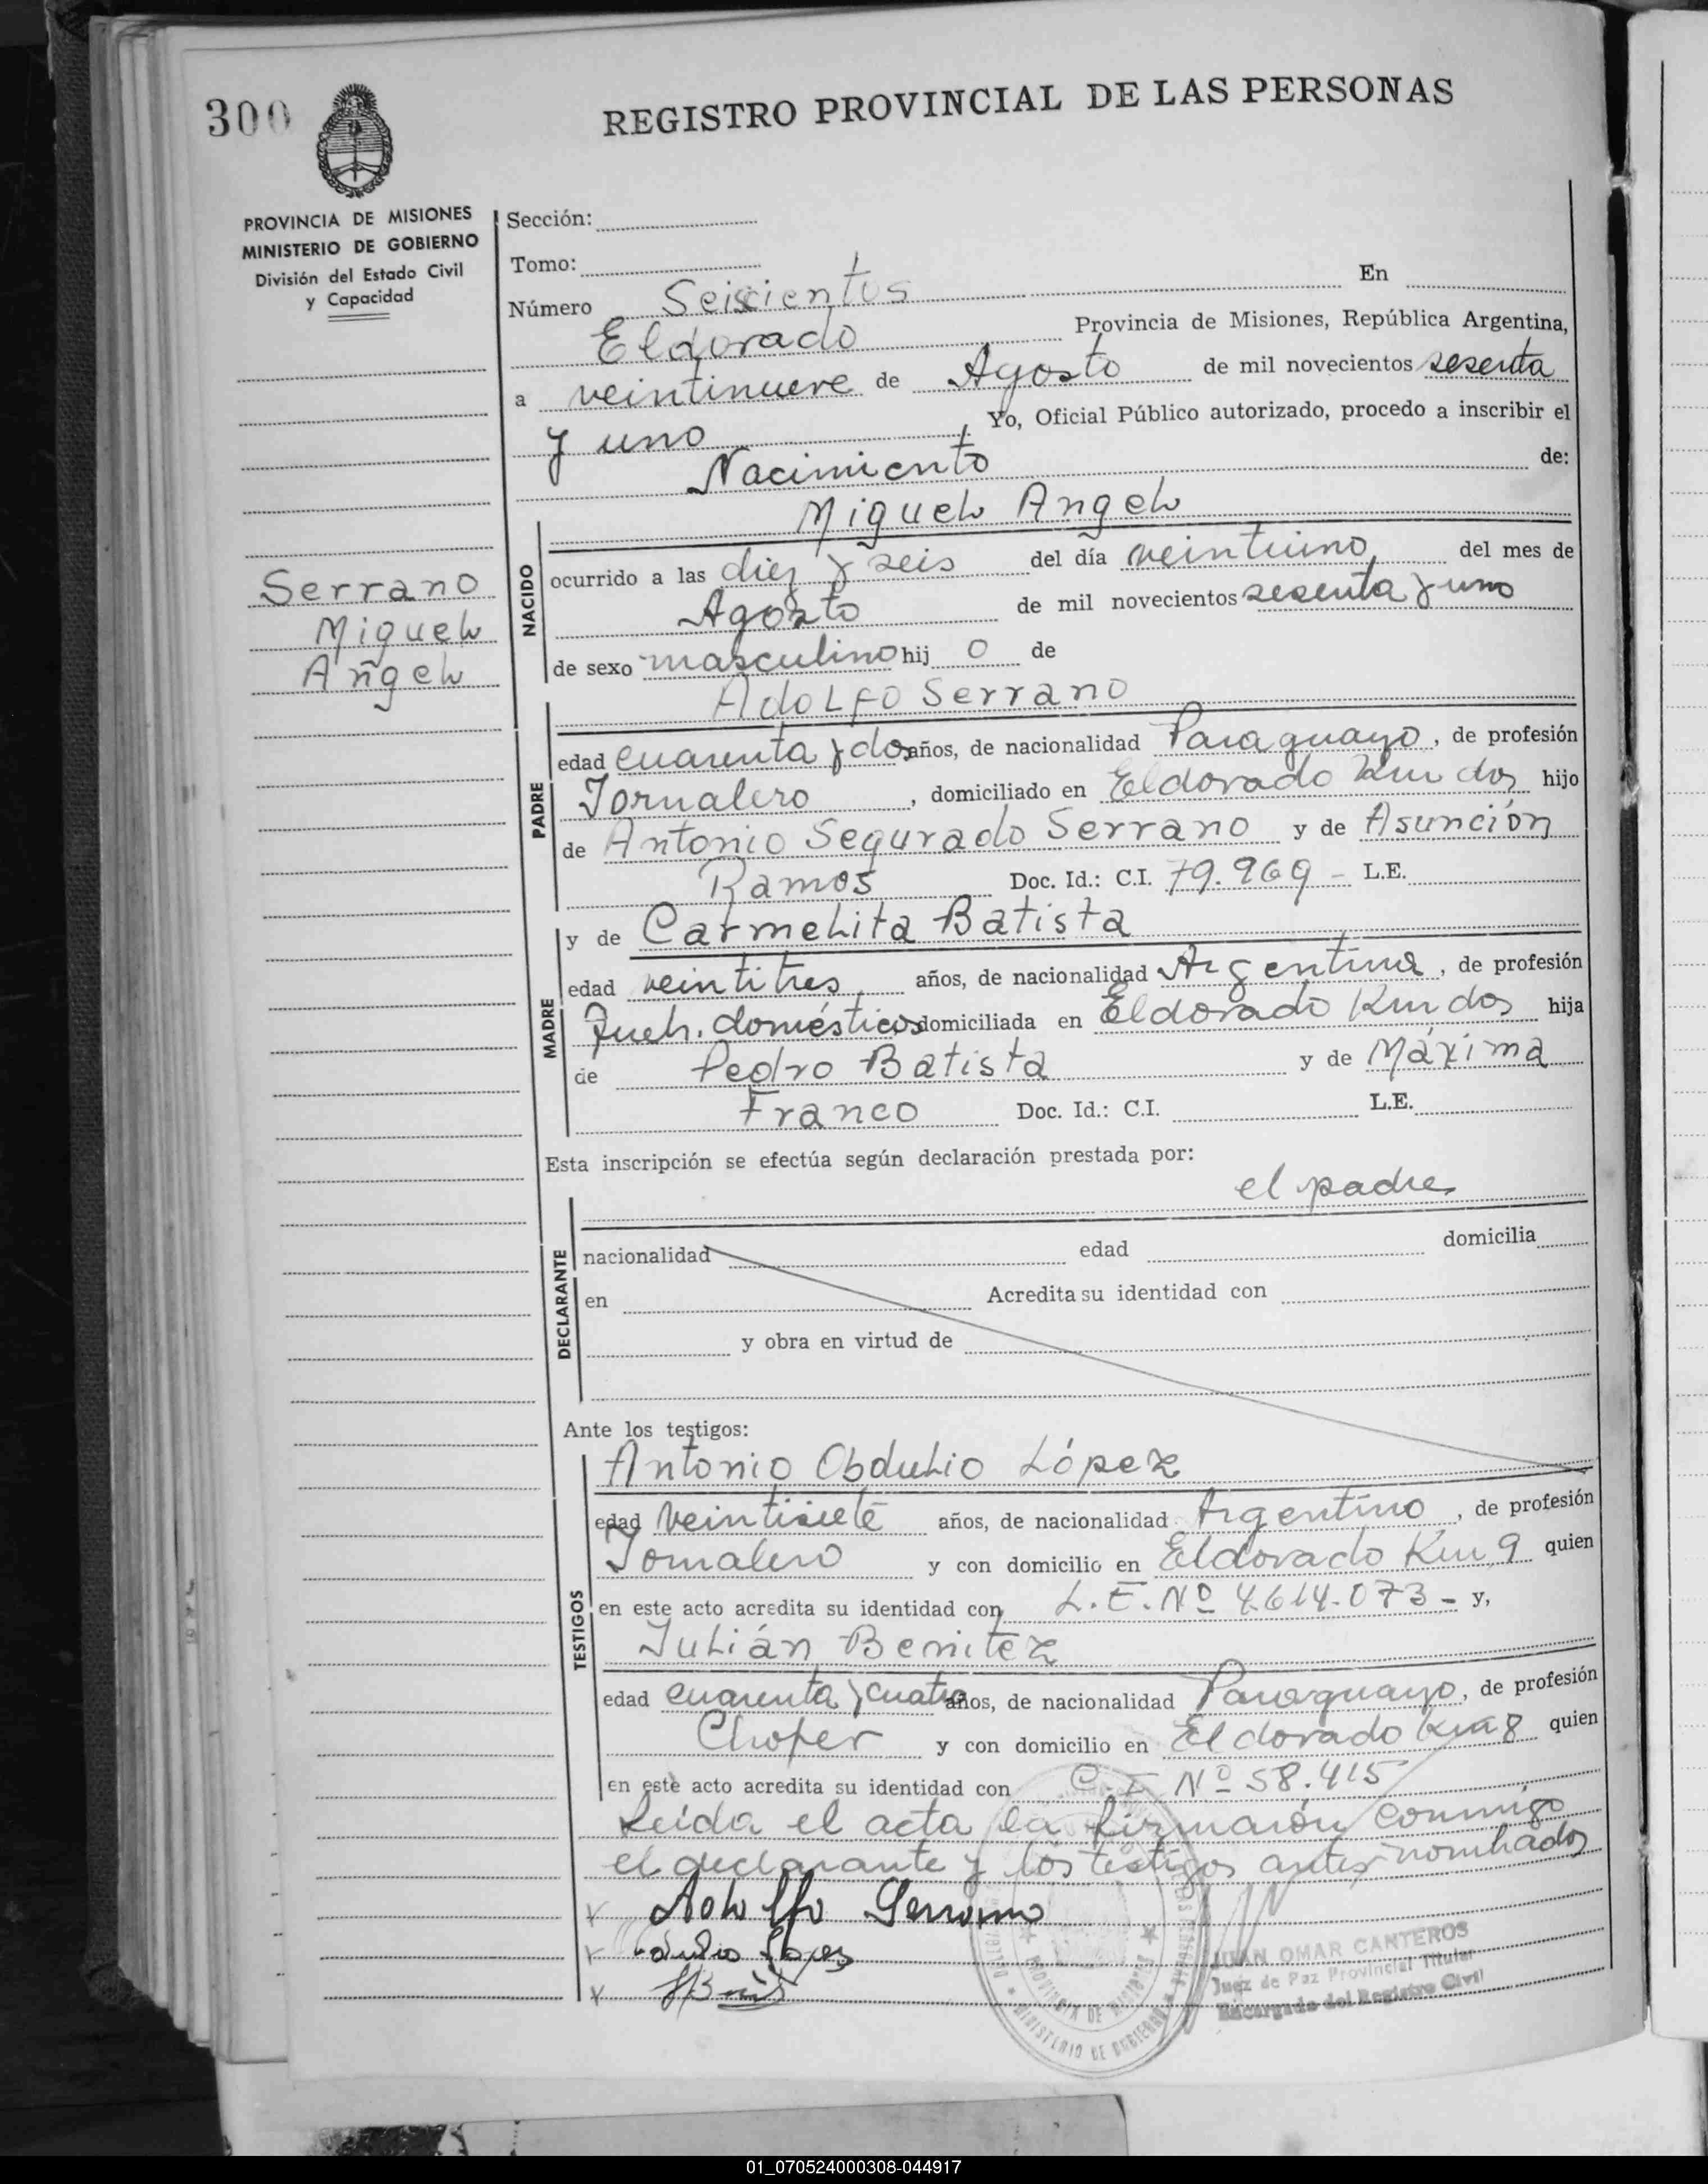 300
REGISTRO PROVINCIAL DE LAS PERSONAS
PROVINCIA DE MISIONES
MINISTERIO DE GOBIERNO
División del Estado Civil
y Capacidad
Serrano
Miguel
Angel
Sección:
Tomo:
Número Seiscientos En
Eldorado Provincia de Misiones, República Argentina,
a veintinueve de Agosto de mil novecientos sesenta
y uno, Yo, Oficial Público autorizado, procedo a inscribir el
Nacimiento de:
Miguel Angel
NACIDO
ocurrido a las diez y seis del día veintiuno del mes de
Agosto de mil novecientos sesenta y uno
de sexo masculino hij o de
Adolfo Serrano
PADRE
edad cuarenta y dos años, de nacionalidad Paraguayo, de profesión
Jornalero, domiciliado en Eldorado Km dos hijo
de Antonio Segurado Serrano y de Asunción
Ramos Doc. Id.: C.I. 79.969 - L.E.
y de Carmelita Batista
MADRE
edad veintitres años, de nacionalidad Argentina, de profesión
Queh. domésticos domiciliada en Eldorado Km dos hija
de Pedro Batista y de Máxima
Franco Doc. Id.: C.I. L.E.
Esta inscripción se efectúa según declaración prestada por:
el padre
DECLARANTE
nacionalidad edad domicilia
en Acredita su identidad con
y obra en virtud de
Ante los testigos:
TESTIGOS
Antonio Obdulio López
edad veintisiete años, de nacionalidad Argentino, de profesión
Jornalero y con domicilio en Eldorado Km 9 quien
en este acto acredita su identidad con L.E. Nº 4.614.073 - y,
Julián Benitez
edad cuarenta y cuatro años, de nacionalidad Paraguayo, de profesión
Chofer y con domicilio en Eldorado Km 8 quien
en este acto acredita su identidad con C.I. Nº 58.415
Leida el acta la firmarón conmigo
el declarante y los testigos antes nombrados
Adolfo Serrano
JUAN OMAR CANTEROS
Juez de Paz Provincial Titular
Encargado del Registro Civil
PROVINCIA DE MISIONES
MINISTERIO DE GOBIERNO
01_070524000308-044917